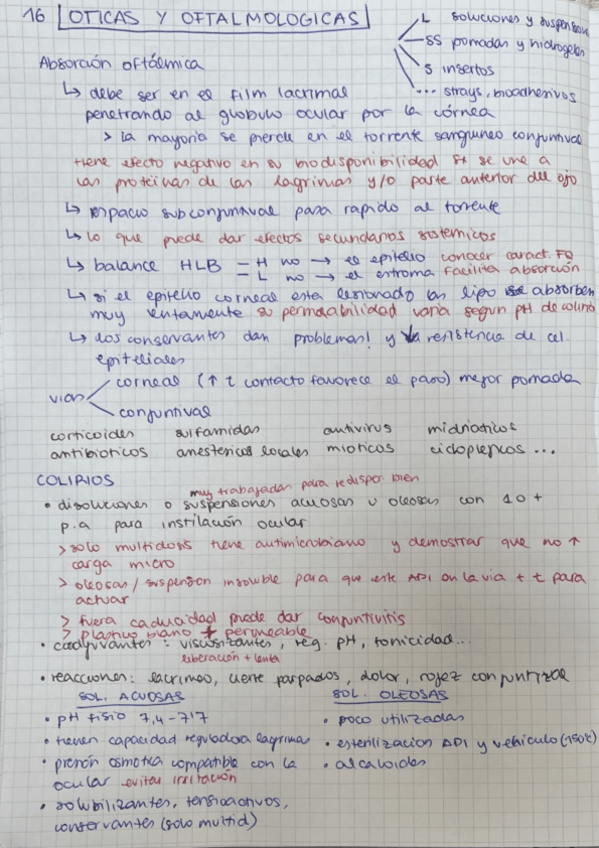 16 OTICAS Y OFTALMOLOGICAS
L soluciones y suspensiones
SS pomadas y hidrogeles
S insertos
... strays, bioadhesivos
Absorción oftálmica
↳ debe ser en el film lacrimal
penetrando al globulo ocular por la córnea
> la mayoria se pierde en el torrente sanguineo conjuntival
tiene efecto negativo en su biodisponibilidad si se une a
las proteinas de las lagrimas y/o parte anterior del ojo
↳ espacio subconjuntival pasa rapido al torrente
↳ lo que puede dar efectos secundarios sistemicos
↳ balance HLB - H no → el epitelio conocer caract. FQ
- L no → el estroma facilita absorción
↳ si el epitelio corneal esta lesionado las lipo se absorben
muy lentamente su permeabilidad varia segun pH de colirio
↳ los conservantes dan problemas! y ↓ la resistencia de cel.
epiteliales
vias corneal (↑ t contacto favorece el paso) mejor pomada
conjuntival
corticoides sulfamidas antivirus midriaticos
antibioticos anestesicos locales mioticos ciclopejicos ...
COLIRIOS
muy trabajadas para redisper. bien
• disoluciones o suspensiones acuosas u oleosas con 1 o +
p.a para instilación ocular
> solo multidosis tiene antimicrobiano y demostrar que no ↑
carga micro
> oleosas / suspension insoluble para que este API en la via + t para
actuar
> fuera caducidad puede dar conjuntivitis
> plastico blando + permeable
• coadyuvantes: viscosizantes, reg. pH, tonicidad...
liberación + lenta
• reacciones: lacrimeo, cierre parpados, dolor, rojez conjuntival
SOL. ACUOSAS SOL. OLEOSAS
• pH fisio 7,4-7,7 • poco utilizadas
• tienen capacidad reguladora lagrimas • esterilizacion API y vehiculo (150ºC)
• presión osmotica compatible con la • alcaloides
ocular evitar irritación
• solubilizantes, tensioactivos,
conservantes (solo multid)